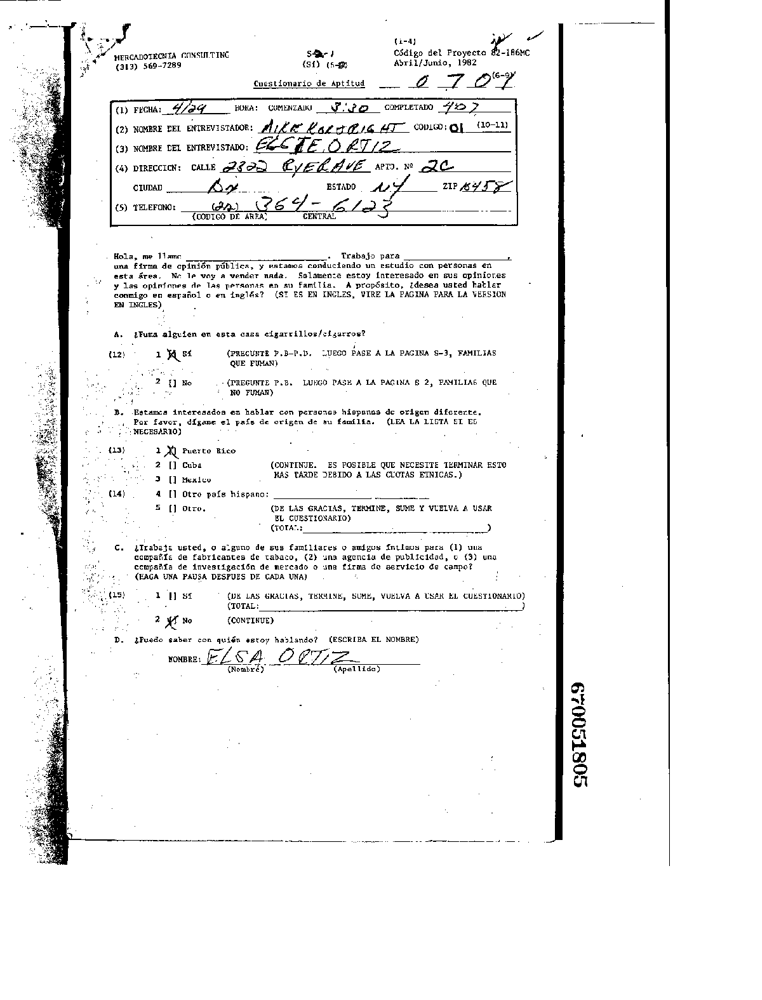 (1-4)
MERCADOTECNIA CONSULTING
(313) 569-7289
Código del Proyecto 82-186MC
Abril/Junio, 1982
Cuestionario de Aptitud
0 7 0 (6-9)
(1) FECHA: 4/29 HORA: COMENZADO 3:30 COMPLETADO
(2) NOMBRE DEL ENTREVISTADOR: CODIGO: 01 (10-11)
(3) NOMBRE DEL ENTREVISTADO: ORTIZ
(4) DIRECCION: CALLE RYER AVE APTO. Nº 2C
CIUDAD Bx ESTADO NY ZIP
(5) TELEFONO: 364-6123
(CODIGO DE AREA) CENTRAL
Hola, me llamo . Trabajo para ,
una firma de opinión pública, y estamos conduciendo un estudio con personas en
esta área. No le voy a vender nada. Solamente estoy interesado en sus opiniones
y las opiniones de las personas en su familia. A propósito, ¿desea usted hablar
conmigo en español o en inglés? (SI ES EN INGLES, VIRE LA PAGINA PARA LA VERSION
EN INGLES)
A. ¿Fuma alguien en esta casa cigarrillos/cigarros?
(12) 1 [X] Sí (PREGUNTE P.B-P.D. LUEGO PASE A LA PAGINA S-3, FAMILIAS
QUE FUMAN)
2 [] No (PREGUNTE P.B. LUEGO PASE A LA PAGINA S 2, FAMILIAS QUE
NO FUMAN)
B. Estamos interesados en hablar con personas hispanas de origen diferente.
Por favor, dígame el país de origen de su familia. (LEA LA LISTA SI ES
NECESARIO)
(13) 1 [X] Puerto Rico
2 [] Cuba (CONTINUE. ES POSIBLE QUE NECESITE TERMINAR ESTO
3 [] Mexico MAS TARDE DEBIDO A LAS CUOTAS ETNICAS.)
(14) 4 [] Otro país hispano:
5 [] Otro. (DE LAS GRACIAS, TERMINE, SUME Y VUELVA A USAR
EL CUESTIONARIO)
(TOTAL: )
C. ¿Trabaja usted, o alguno de sus familiares o amigos íntimos para (1) una
compañía de fabricantes de tabaco, (2) una agencia de publicidad, o (3) una
compañía de investigación de mercado o una firma de servicio de campo?
(HAGA UNA PAUSA DESPUES DE CADA UNA)
(15) 1 [] Sí (DE LAS GRACIAS, TERMINE, SUME, VUELVA A USAR EL CUESTIONARIO)
(TOTAL: )
2 [X] No (CONTINUE)
D. ¿Puedo saber con quién estoy hablando? (ESCRIBA EL NOMBRE)
NOMBRE: ELSA ORTIZ
(Nombre) (Apellido)
670051805